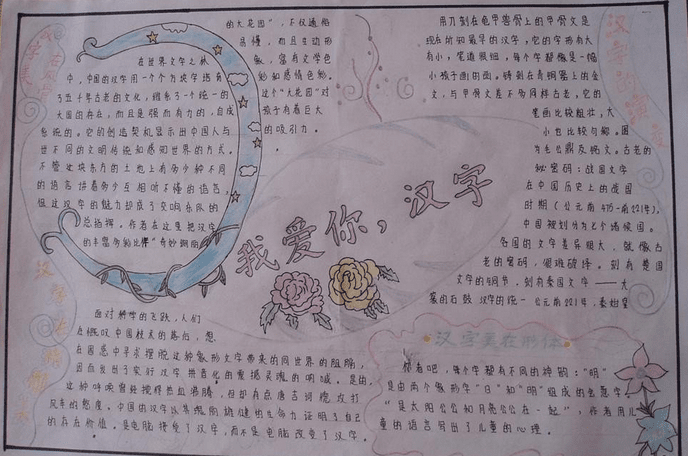 在世界文字之林
中，中国的汉字用一个个方块字培育
了五千年古老的文化，维系了一个统一的
大国的存在，而且是强而有力的，自成
系统的。它的创造契机显示出中国人与
世不同的文明传统和感知世界的方式。
不管这块东方的土地上有多少种不同
的语言 讲着多少互相听不懂的语言，
但这汉字的魅力却成了交响乐队的
总指挥。作者在这里把汉字
的丰富多的比作“奇妙
的大花园”，不仅通俗
易懂，而且生动形
象，富有文学色
彩和感情色彩。
这个“大花园”对
孩子有着巨大
的吸引力。
用刀刻在龟甲兽骨上的甲骨文是
现在所知最早的汉字，它的字形有大
有小，笔道很细，每个字都像是一幅
小孩子画的画。铸刻在青铜器上的金
文，与甲骨文差不多同样古老，它的
笔画比较粗壮，大
小也比较匀称。图
为毛公鼎及铭文。古老的
秘密码：战国文字
在中国历史上的战国
时期（公元前475-前221年），
中国被划分为七个诸侯国。
各国的文字差异很大，就像古
老的密码，很难破译。刻有楚国
文字的
刻有秦国文字——大
篆的石鼓 汉字的统一 公元前221年，秦始皇
我爱你，汉字
面对科学的飞跃，人们
在慨叹中国技术的落后，想
在困惑中寻求摆脱这种象形文字带来的同世界的阻隔，
因而发出了实行汉字拼音化的震撼灵魂的呐喊。是的，
这种呐喊曾经搅得热血沸腾，但却有点唐吉诃德攻打
风车的憨度。中国的汉字以其
雄健的生命力证明了自己
的存在价值。是电脑接受了汉字，而不是电脑改变了汉字。
汉字美在形体
你看吧，每个字都有不同的神韵：“明”
是由两个象形字“日”和“明”组成的会意字，
“是太阳公公和月亮公公在一起”，作者用儿
童的语言写出了儿童的心理。